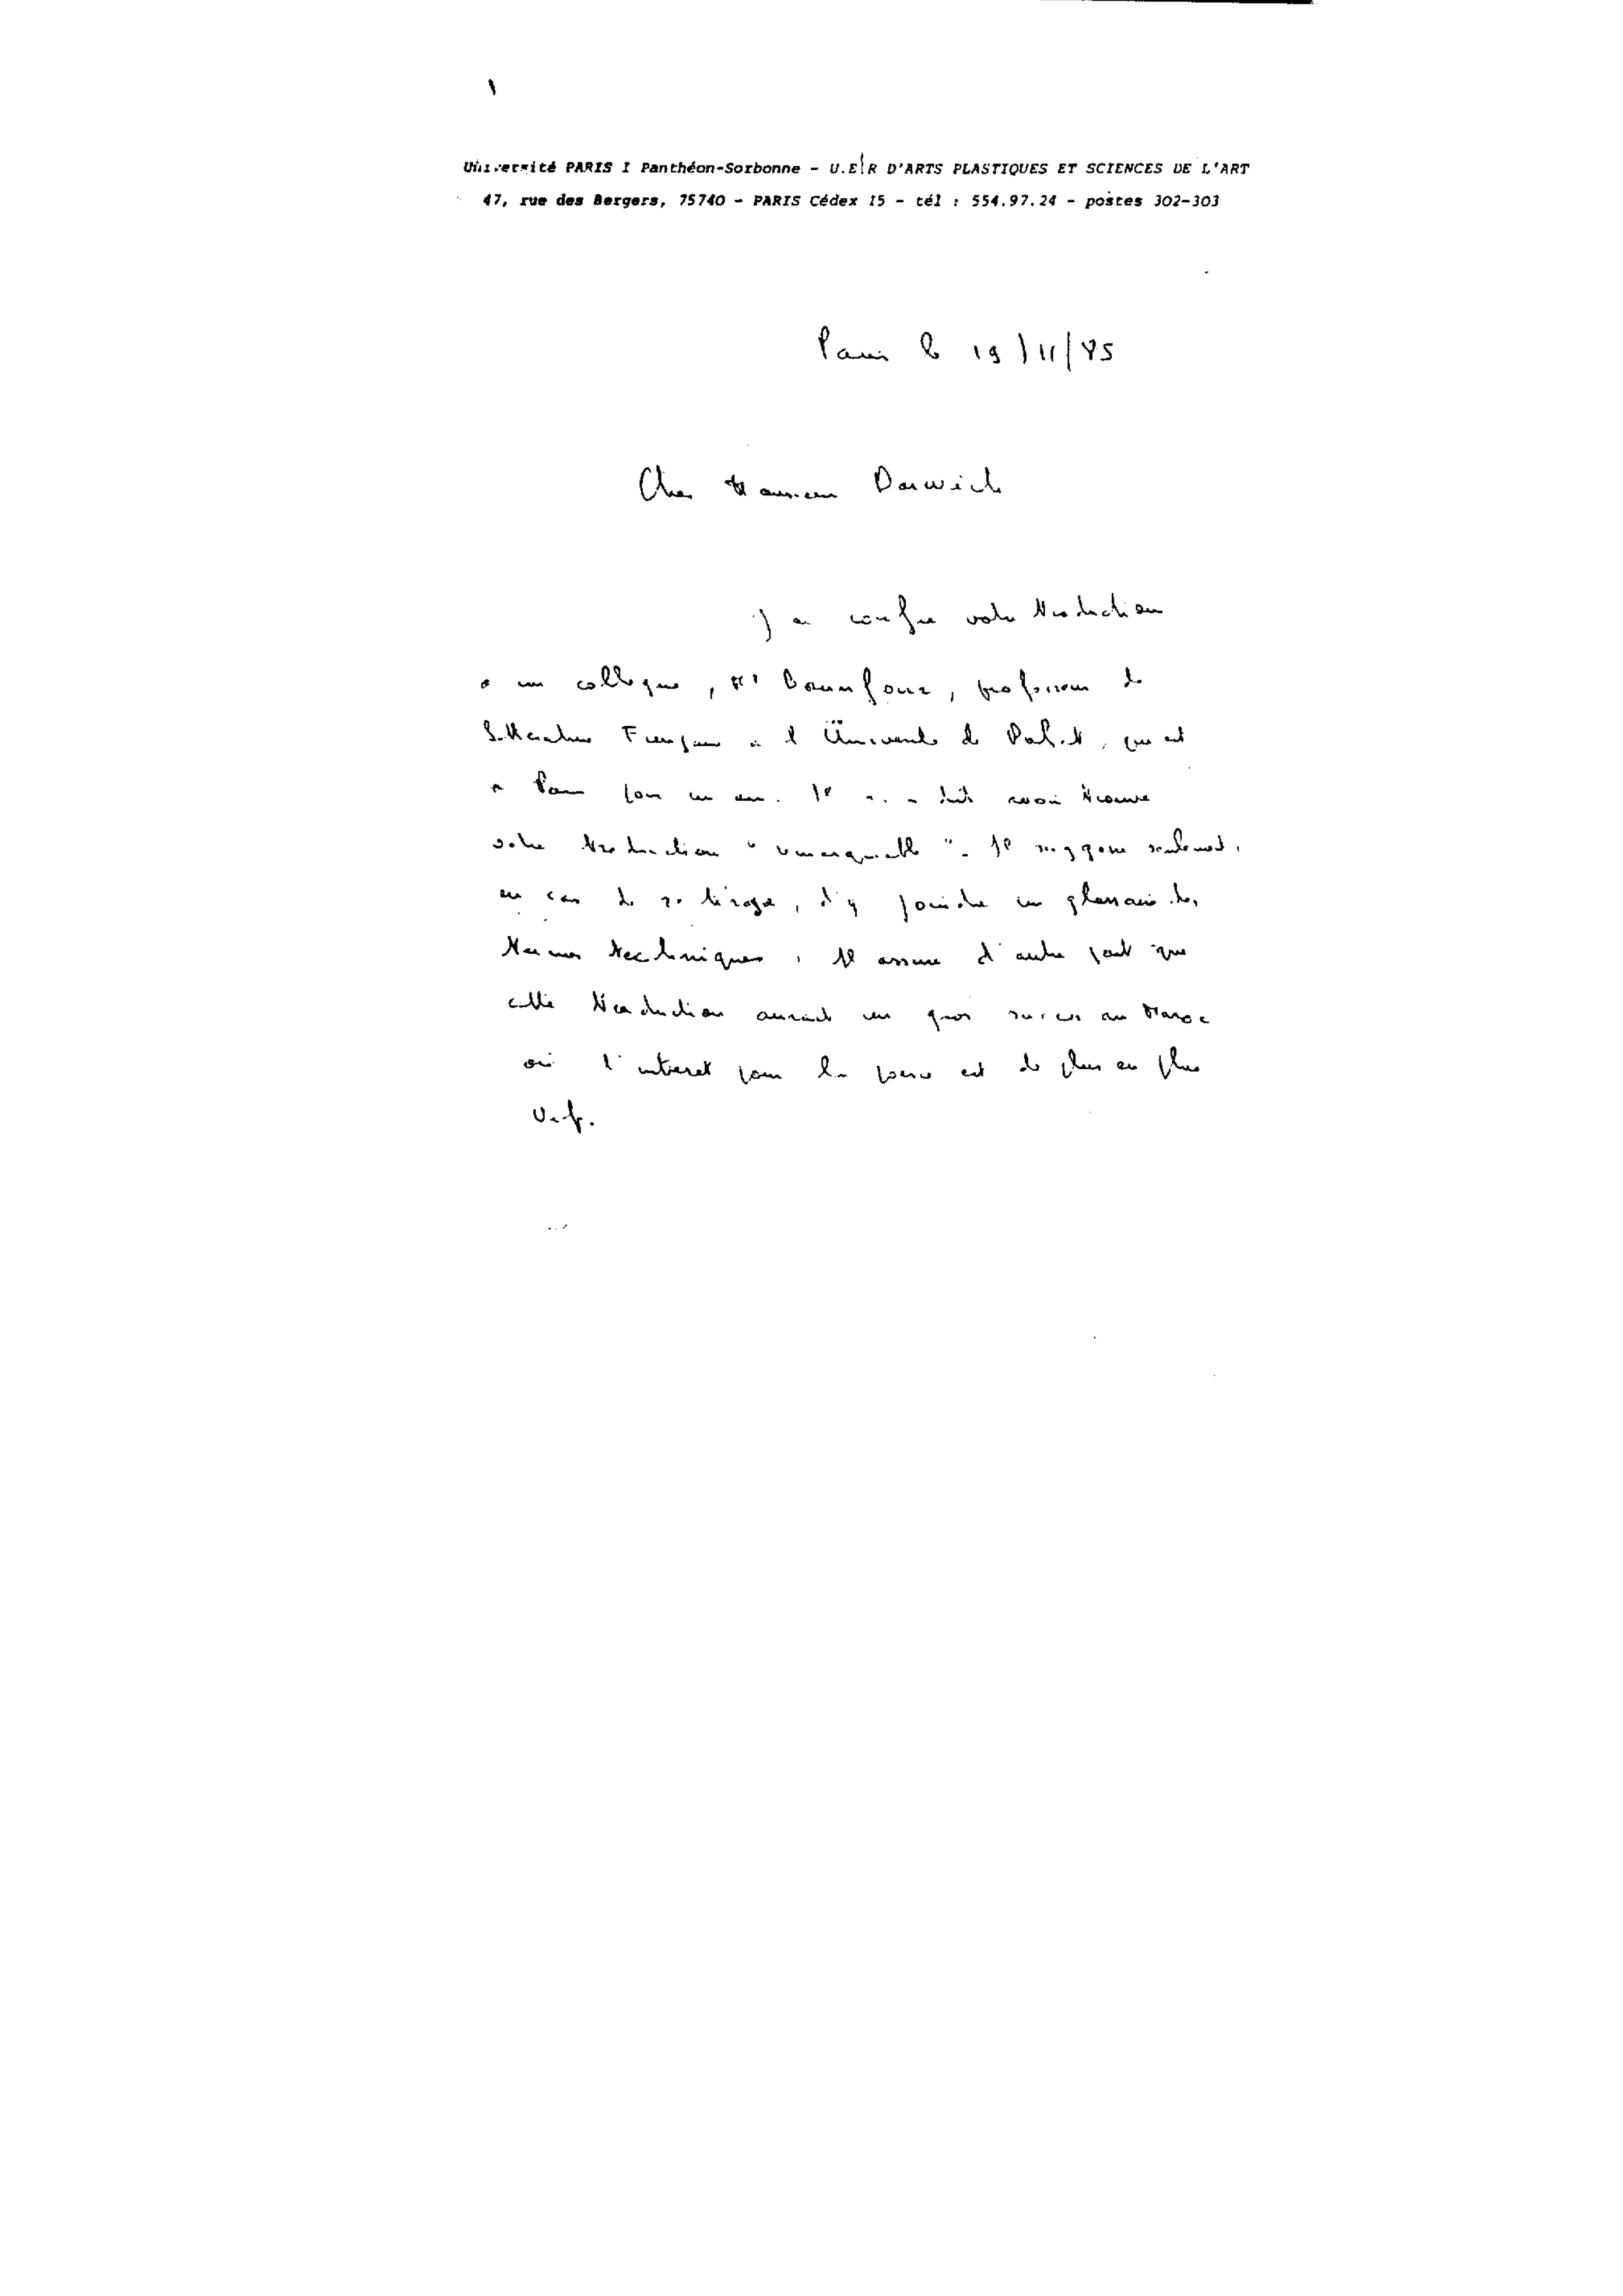 Université PARIS I Panthéon-Sorbonne - U.E.R D'ARTS PLASTIQUES ET SCIENCES DE L'ART
47, rue des Bergers, 75740 - PARIS Cédex 15 - tél : 554.97.24 - postes 302-303
Paris le 19/11/85
Cher Monsieur Darwich
J'ai confié votre traduction
à un collègue, Mr Bounfour, professeur de
littérature Française à l'Université de Rabat, qui est
à Paris pour un an. Il m'a dit avoir trouvé
votre traduction "remarquable". Il suggère seulement,
en cas de re tirage, d'y joindre un glossaire des
termes techniques. Il assure d'autre part que
cette traduction aurait un gros succès au Maroc
où l'intérêt pour la est de plus en plus
vif.